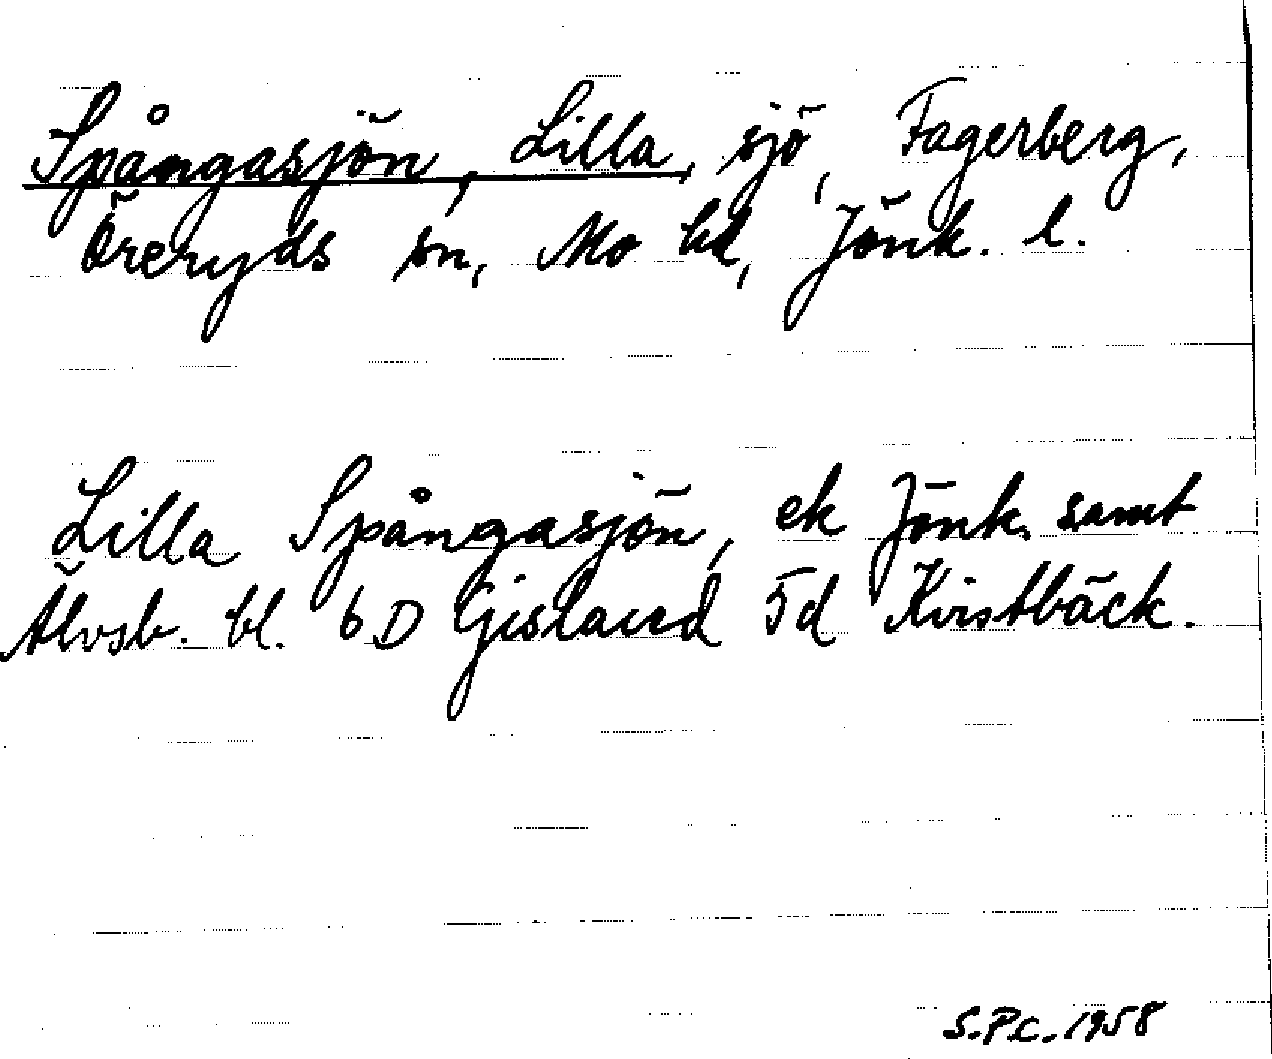 Spångasjön, Lilla, sjö, Fagerberg,
Öreryds sn, Mo hd, Jönk. l.
Lilla Spångasjön, ek Jönk. samt
Älvsb. bl. 6D Gislaved 5d Kvistbäck.
S.P.C. 1958